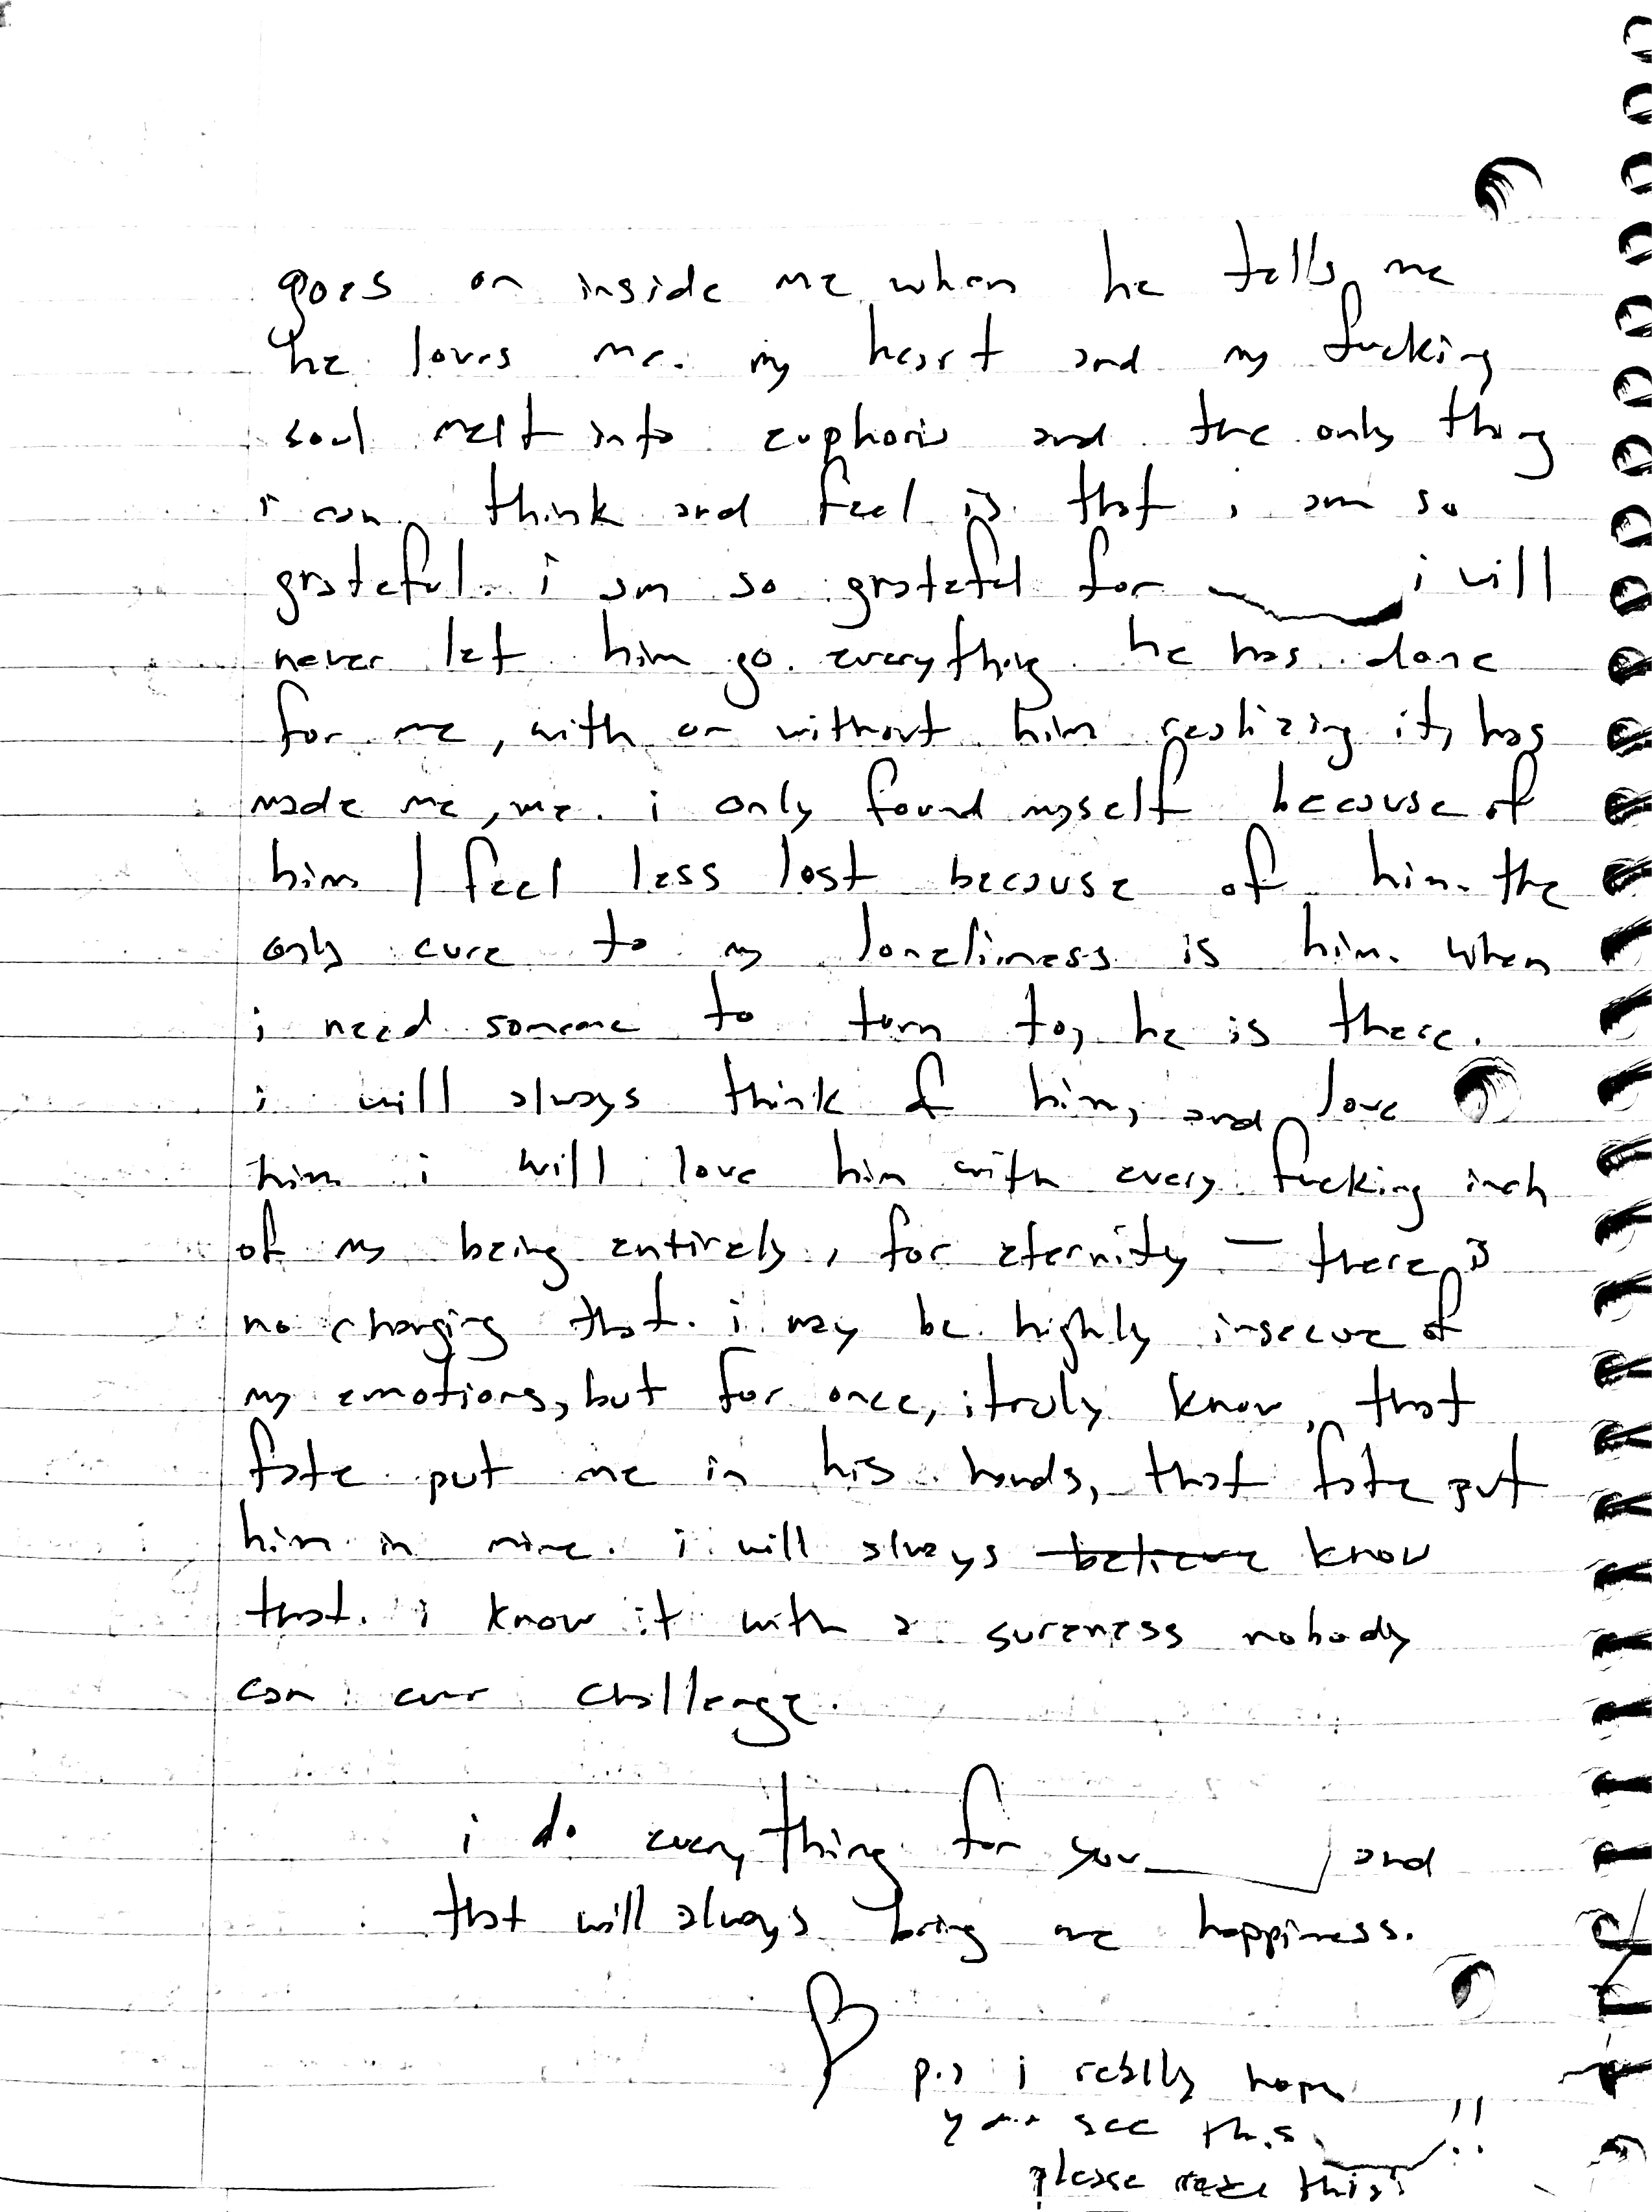 goes on inside me when he tells me
he loves me. my heart and my fucking
soul melt into euphoria and the only thing
i can think and feel is that i am so
grateful. i am so grateful for i will
never let him go. everything he has done
for me, with or without him realizing it, has
made me, me. i only found myself because of
him I feel less lost because of him. the
only cure to my loneliness is him. when
i need someone to turn to, he is there.
i will always think of him, and love
him i will love him with every fucking inch
of my being entirely, for eternity — there is
no changing that. i may be highly insecure of
my emotions, but for once, i truly know, that
fate put me in his hands, that fate put
him in mine. i will always believe know
that. i know it with a sureness nobody
can ever challenge.
i do everything for you and
that will always bring me happiness.
p.s i really hope
you see this !!
please this!